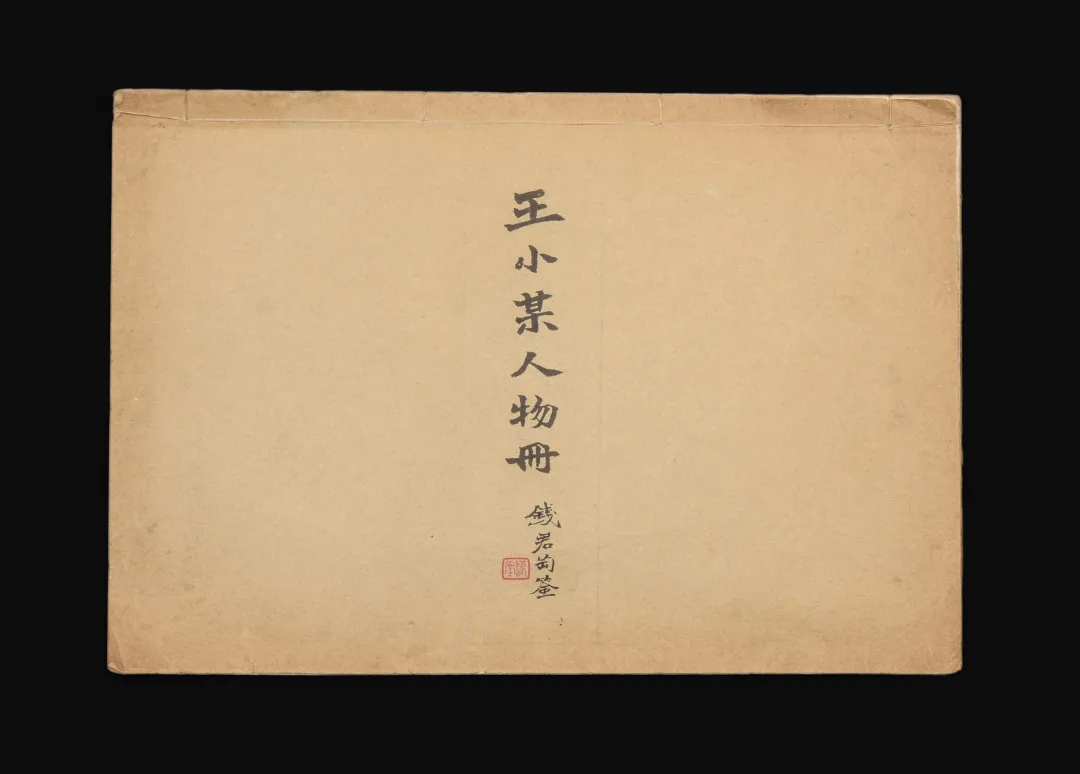 王小某人物冊
錢君匋签